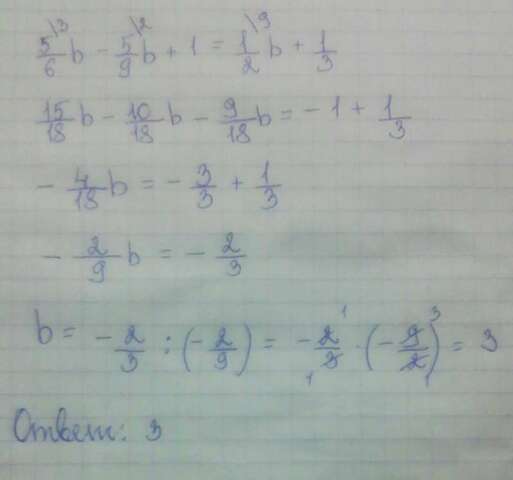 5/6 \3 b - 5/9 \2 b + 1 = 1/2 \9 b + 1/3
15/18 b - 10/18 b - 9/18 b = - 1 + 1/3
- 4/18 b = - 3/3 + 1/3
- 2/9 b = - 2/3
b = - 2/3 : (- 2/9) = - 2/3 · (- 9/2) = 3
1 3
1 1
Ответ: 3